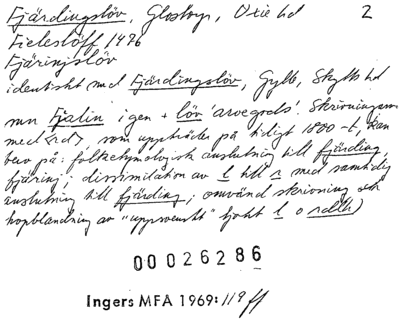 Fjärdingslöv, Glostorp, Oxie hd 2
Fieleslöff 1496
Fjäringslöv
identiskt med Fjärdingslöv, Gylle, Skytts hd
mn Fjalin i gen + löv 'arvegods'. Skrivningarna
med <rd> som uppträder på tidigt 1800-t, kan
bero på: folketymologisk anslutning till fjärding
fjäring; dissimilation av l till r med samtidig
anslutning till fjärding; omvänd skrivning och
hopblandning av "uppsvenskt" tjockt l o rdlh)
00026286
Ingers MFA 1969: 119 ff